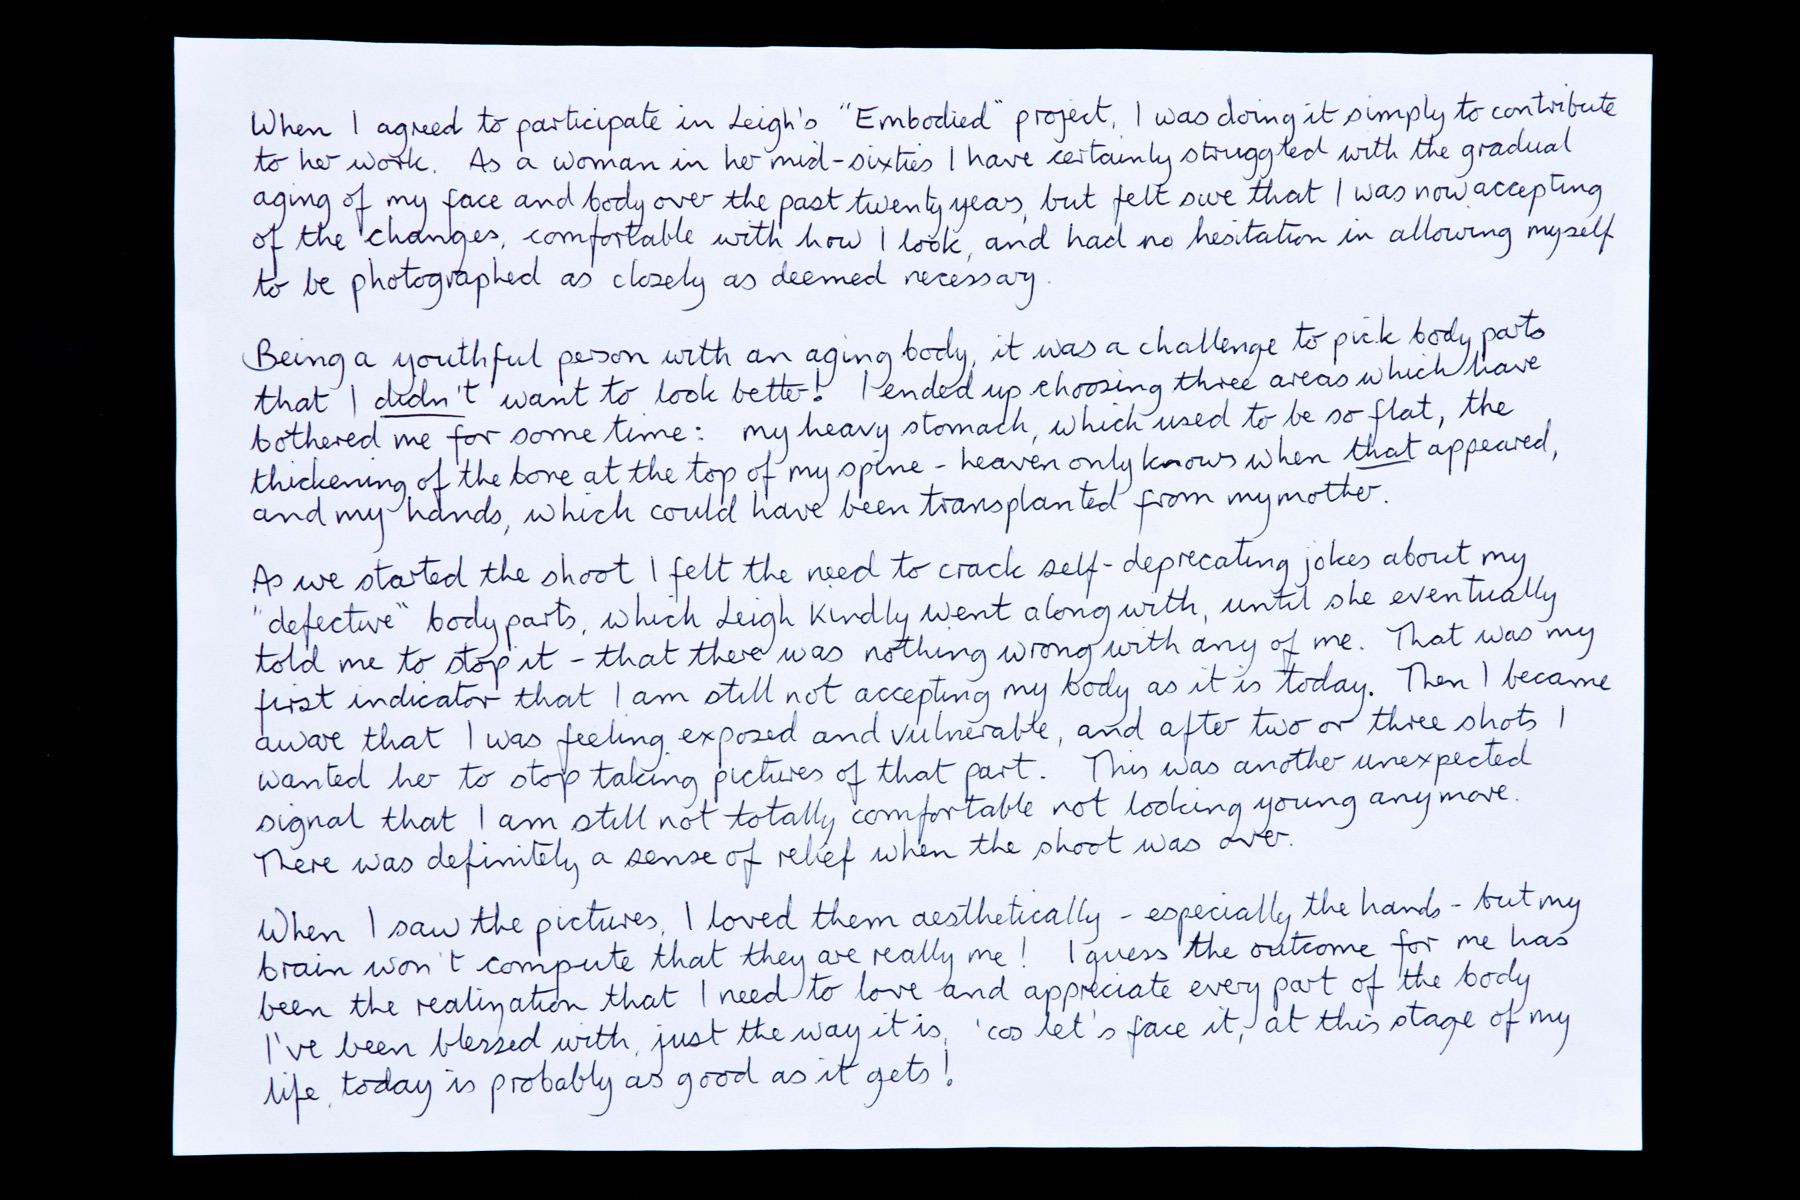 When I agreed to participate in Leigh's "Embodied" project, I was doing it simply to contribute
to her work. As a woman in her mid-sixties I have certainly struggled with the gradual
aging of my face and body over the past twenty years, but felt sure that I was now accepting
of the changes, comfortable with how I look, and had no hesitation in allowing myself
to be photographed as closely as deemed necessary.
Being a youthful person with an aging body, it was a challenge to pick body parts
that I didn't want to look better! I ended up choosing three areas which have
bothered me for some time: my heavy stomach, which used to be so flat, the
thickening of the bone at the top of my spine - heaven only knows when that appeared,
and my hands, which could have been transplanted from my mother.
As we started the shoot I felt the need to crack self-deprecating jokes about my
"defective" body parts, which Leigh kindly went along with, until she eventually
told me to stop it - that there was nothing wrong with any of me. That was my
first indicator that I am still not accepting my body as it is today. Then I became
aware that I was feeling exposed and vulnerable, and after two or three shots I
wanted her to stop taking pictures of that part. This was another unexpected
signal that I am still not totally comfortable not looking young anymore.
There was definitely a sense of relief when the shoot was over.
When I saw the pictures, I loved them aesthetically - especially the hands - but my
brain won't compute that they are really me! I guess the outcome for me has
been the realization that I need to love and appreciate every part of the body
I've been blessed with, just the way it is, 'cos let's face it, at this stage of my
life, today is probably as good as it gets!